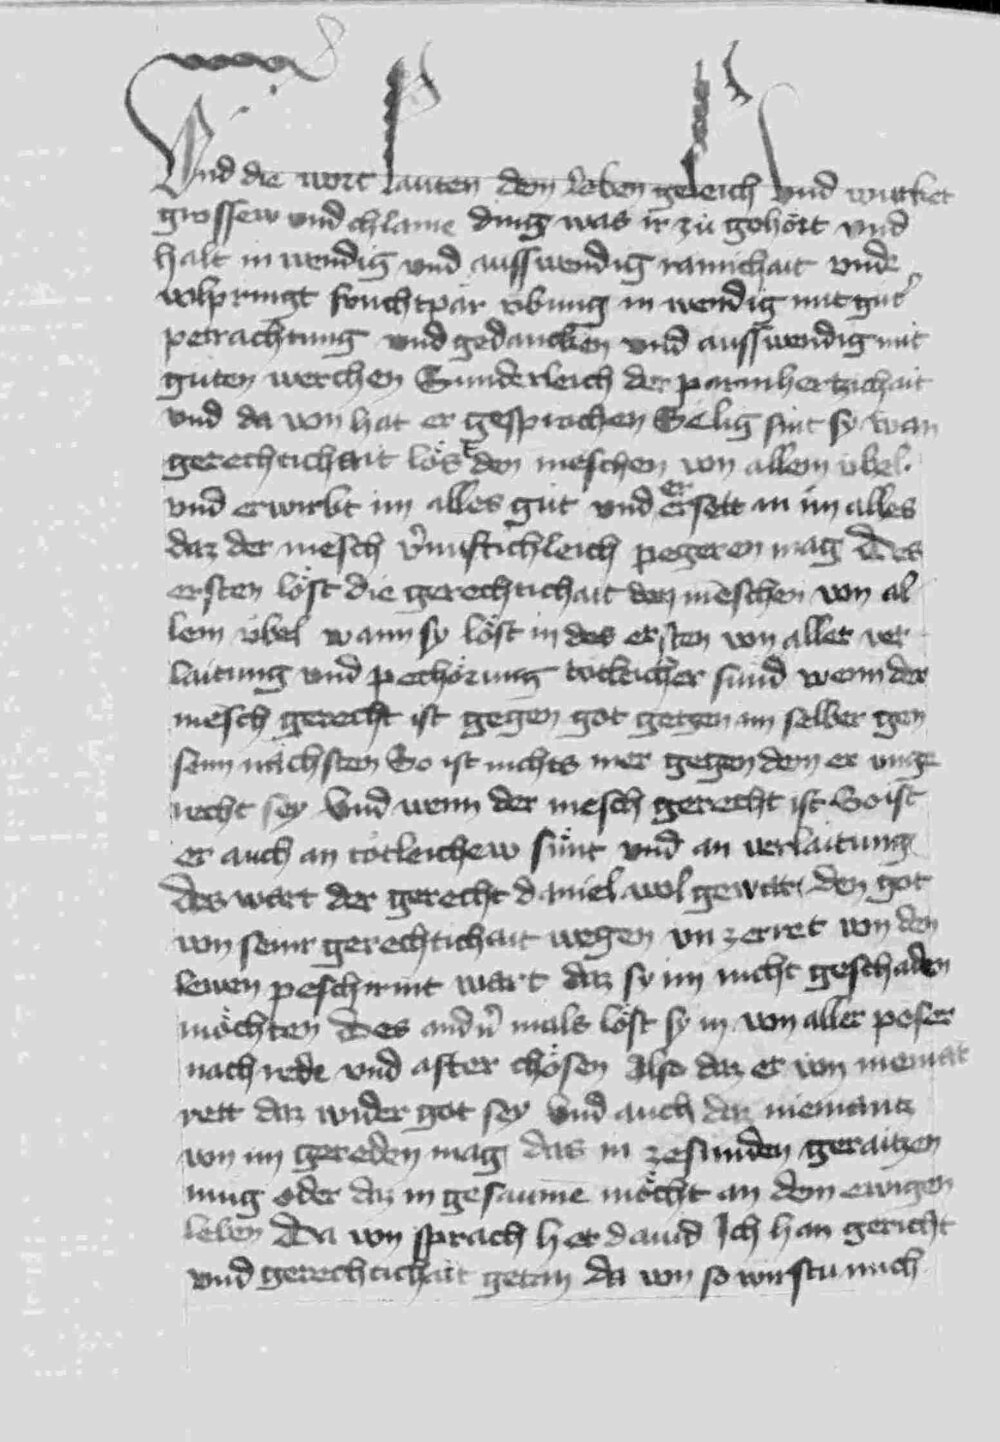 Vnd die wort lauten dem leben geleich vnd wurket
grossew vnd chlaine ding was ir zů gehört vnd
halt in wendig vnd auss wendig rainichait vnde
volpringt fruchtpär vbung in wendig mit gut'
petrachtung vnd gedancken vnd auss wendig mit
guten werchen Sunderleich der parmhertzichait
vnd da von hat er gesprochen Selig sint sy wan
gerechtichait löst den meschen von allem vbel
vnd erwirbt im alles gut vnd er setzt an im alles
daz der mesch v'nuftichleich pegeren mag Des
ersten löst die gerechtichait den meschen von al
lem übel wann sy löst in des ersten von aller ver
laitung vnd pechörung totleicher sund wenn der
mesch gerecht ist gegen got gegen im selber gen
seim nächsten So ist nichts mer gegen dem er unge
recht sey Vnd wenn der mesch gerecht ist So ist
er auch an totleichew sünt vnd an verlaitung
Des wart der gerecht daniel wol gewar den got
von seinr gerechtichait wegen vn zerret von den
lewen peschirmt wart daz sy im nicht geschaden
möchten Des and'n mals löst sy in von aller poser
nach rede vnd after chösen Also daz er von niemant
rett daz wider got sey Vnd auch daz niemantz
von im gereden mag das in ze sunden geraitzen
mug oder daz in gesaume möcht an dem ewigen
leben Da von sprach her dauid Ich han gericht
vnd gerechtichait getan da von so wirstu mich